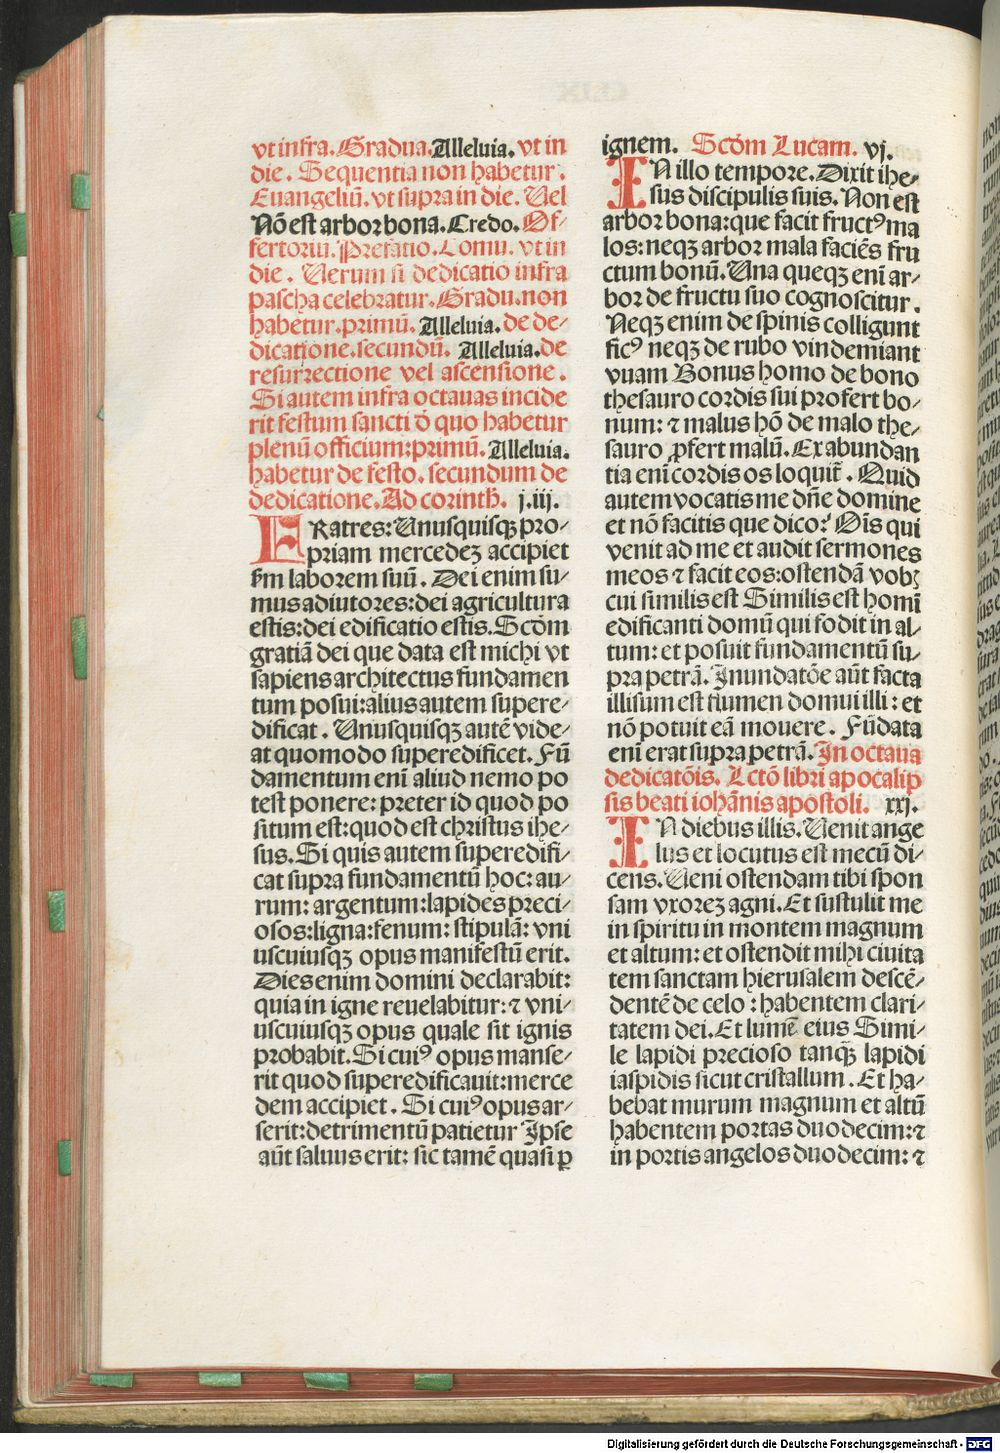 vt infra. Gradua. Alleluia. vt in
die. Sequentia non habetur.
Euangeliū. vt supra in die. Uel
Nō est arbor bona. Credo. Of-
fertoriū. Prefatio. Comu. vt in
die. Uerum si dedicatio infra
pascha celebratur. Gradu. non
habetur. primū. Alleluia. de de-
dicatione. secundū. Alleluia. de
resurrectione vel ascensione.
Si autem infra octauas incide
rit festum sancti đ quo habetur
plenū officium: primū. Alleluia.
habetur de festo. secundum de
dedicatione. Ad corinth. j. iij.
FRatres: Unusquisqꝫ pro-
priam mercedeꝫ accipiet
sm̄ laborem suū. Dei enim su-
mus adiutores: dei agricultura
estis: dei edificatio estis. Scd̄m
gratiā dei que data est michi vt
sapiens architectus fundamen
tum posui: alius autem supere-
dificat. Unusquisqꝫ autē vide-
at quomodo superedificet. Fū
damentum enī aliud nemo po
test ponere: preter id quod po
situm est: quod est christus ihe-
sus. Si quis autem superedifi-
cat supra fundamentū hoc: au-
rum: argentum: lapides preci-
osos: ligna: fenum: stipulā: vni
uscuiusqꝫ opus manifestū erit.
Dies enim domini declarabit:
quia in igne reuelabitur: ⁊ vni-
uscuiusqꝫ opus quale sit ignis
probabit. Si cuiꝰ opus manse-
rit quod superedificauit: merce
dem accipiet. Si cuiꝰ opus ar-
serit: detrimentū patietur Ipse
aūt saluus erit: sic tamē quasi ꝑ
ignem. Scd̄m Lucam. vj.
IN illo tempore. Dixit ihe-
sus discipulis suis. Non est
arbor bona: que facit fructꝰ ma
los: neqꝫ arbor mala faciēs fru
ctum bonū. Una queqꝫ enī ar-
bor de fructu suo cognoscitur.
Neqꝫ enim de spinis colligunt
ficꝰ neqꝫ de rubo vindemiant
vuam Bonus homo de bono
thesauro cordis sui profert bo-
num: ⁊ malus hō de malo the-
sauro ꝓfert malū. Ex abundan
tia enī cordis os loquit̄. Quid
autem vocatis me dn̄e domine
et nō facitis que dico? Oīs qui
venit ad me et audit sermones
meos ⁊ facit eos: ostendā vobꝫ
cui similis est Similis est homī
edificanti domū qui fodit in al-
tum: et posuit fundamentū su-
pra petrā. Inundatōe aūt facta
illisum est flumen domui illi: et
nō potuit eā mouere. Fūdata
enī erat supra petrā. In octaua
dedicatōis. Lctō libri apocalip
sis beati iohānis apostoli. xxj.
IN diebus illis. Uenit ange
lus et locutus est mecū di-
cens. Ueni ostendam tibi spon
sam vxoreꝫ agni. Et sustulit me
in spiritu in montem magnum
et altum: et ostendit mihi ciuita
tem sanctam hierusalem descē-
dentē de celo: habentem clari-
tatem dei. Et lumē eius Simi-
le lapidi precioso tanqꝫ̄ lapidi
iaspidis sicut cristallum. Et ha-
bebat murum magnum et altū
habentem portas duodecim: ⁊
in portis angelos duodecim: ⁊
Digitalisierung gefördert durch die Deutsche Forschungsgemeinschaft - DFG